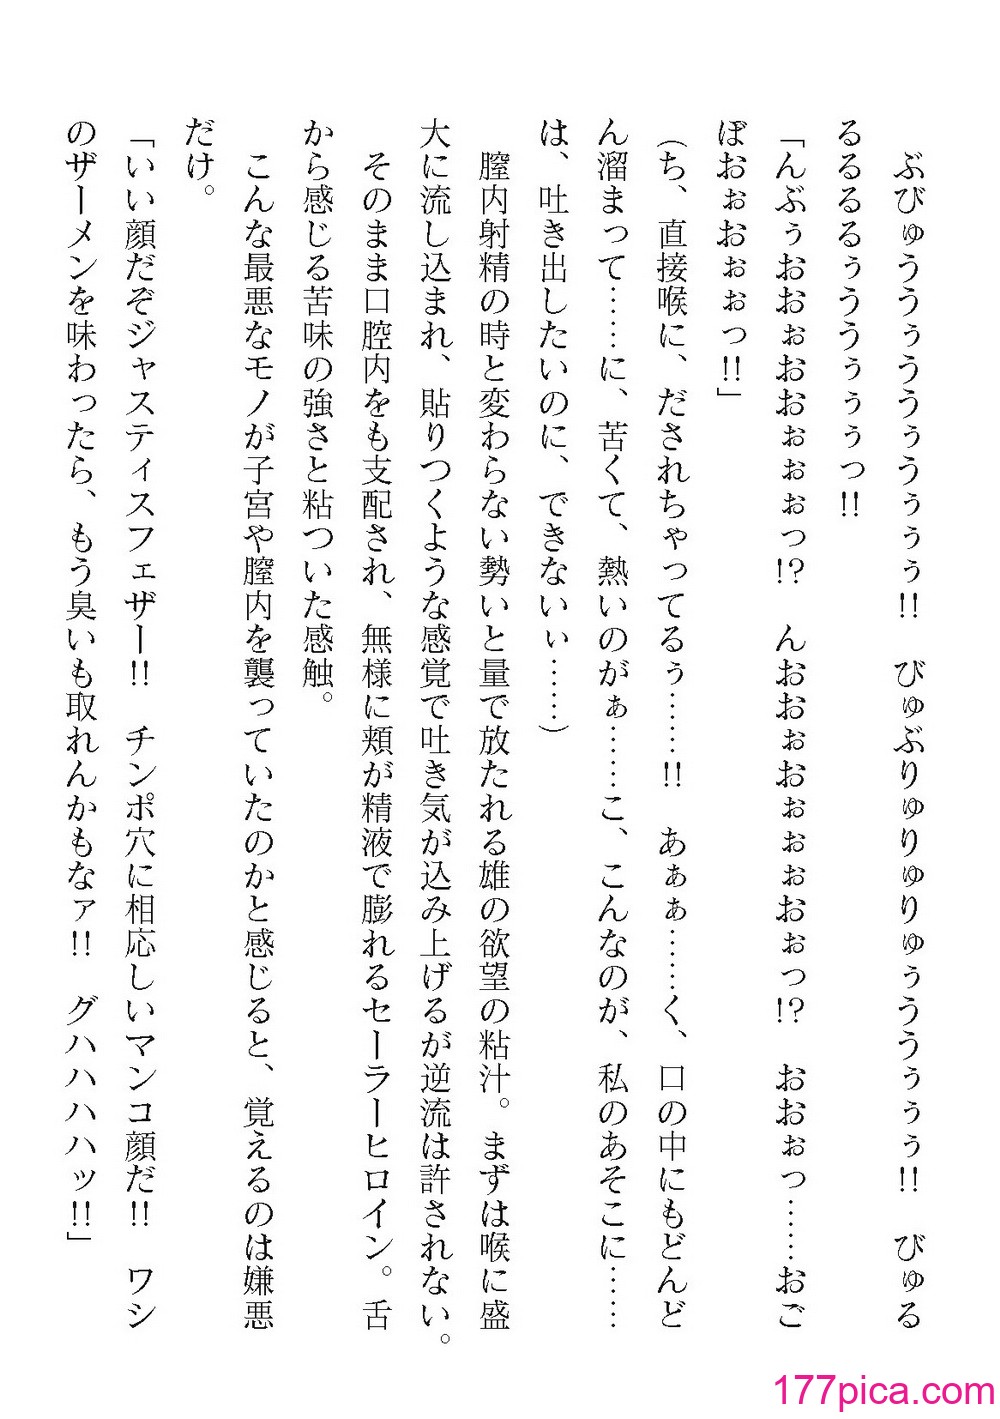 ぶびゅううぅううぅうぅぅぅ!!　びゅぶりゅりゅりゅぅううぅぅぅ!!　びゅる
るるるるぅううぅぅぅっ!!
「んぶぅおおぉおおぉぉぉっ!?　んおおぉおぉぉぉおぉっ!?　おおぉっ……おご
ぼおぉおぉぉっ!!」
（ち、直接喉に、だされちゃってるぅ……!!　あぁぁ……く、口の中にもどんど
ん溜まって……に、苦くて、熱いのがぁ……こ、こんなのが、私のあそこに……
は、吐き出したいのに、できないぃ……）
膣内射精の時と変わらない勢いと量で放たれる雄の欲望の粘汁。まずは喉に盛
大に流し込まれ、貼りつくような感覚で吐き気が込み上げるが逆流は許されない。
そのまま口腔内をも支配され、無様に頬が精液で膨れるセーラーヒロイン。舌
から感じる苦味の強さと粘ついた感触。
こんな最悪なモノが子宮や膣内を襲っていたのかと感じると、覚えるのは嫌悪
だけ。
「いい顔だぞジャスティスフェザー!!　チンポ穴に相応しいマンコ顔だ!!　ワシ
のザーメンを味わったら、もう臭いも取れんかもなァ!!　グハハハハッ!!」
177pica.com